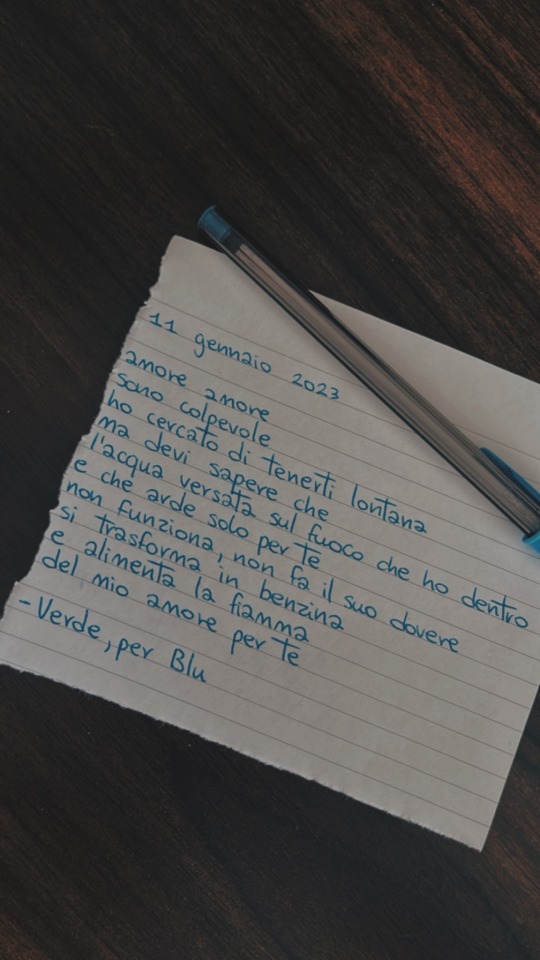 11 gennaio 2023
amore amore
sono colpevole
ho cercato di tenerti lontana
ma devi sapere che
l'acqua versata sul fuoco che ho dentro
e che arde solo per te
non funziona, non fa il suo dovere
si trasforma in benzina
e alimenta la fiamma
del mio amore per te
- Verde, per Blu